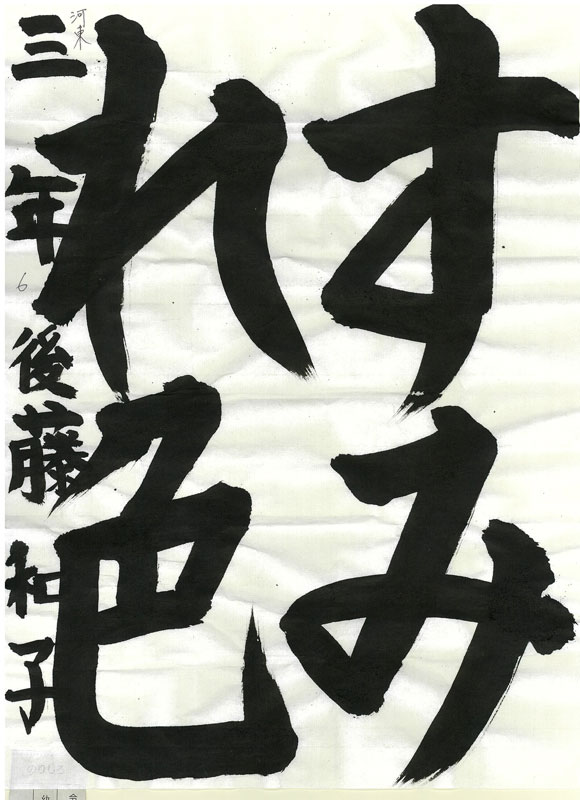 すみ
れ色
三年 後藤 和子
河東
6